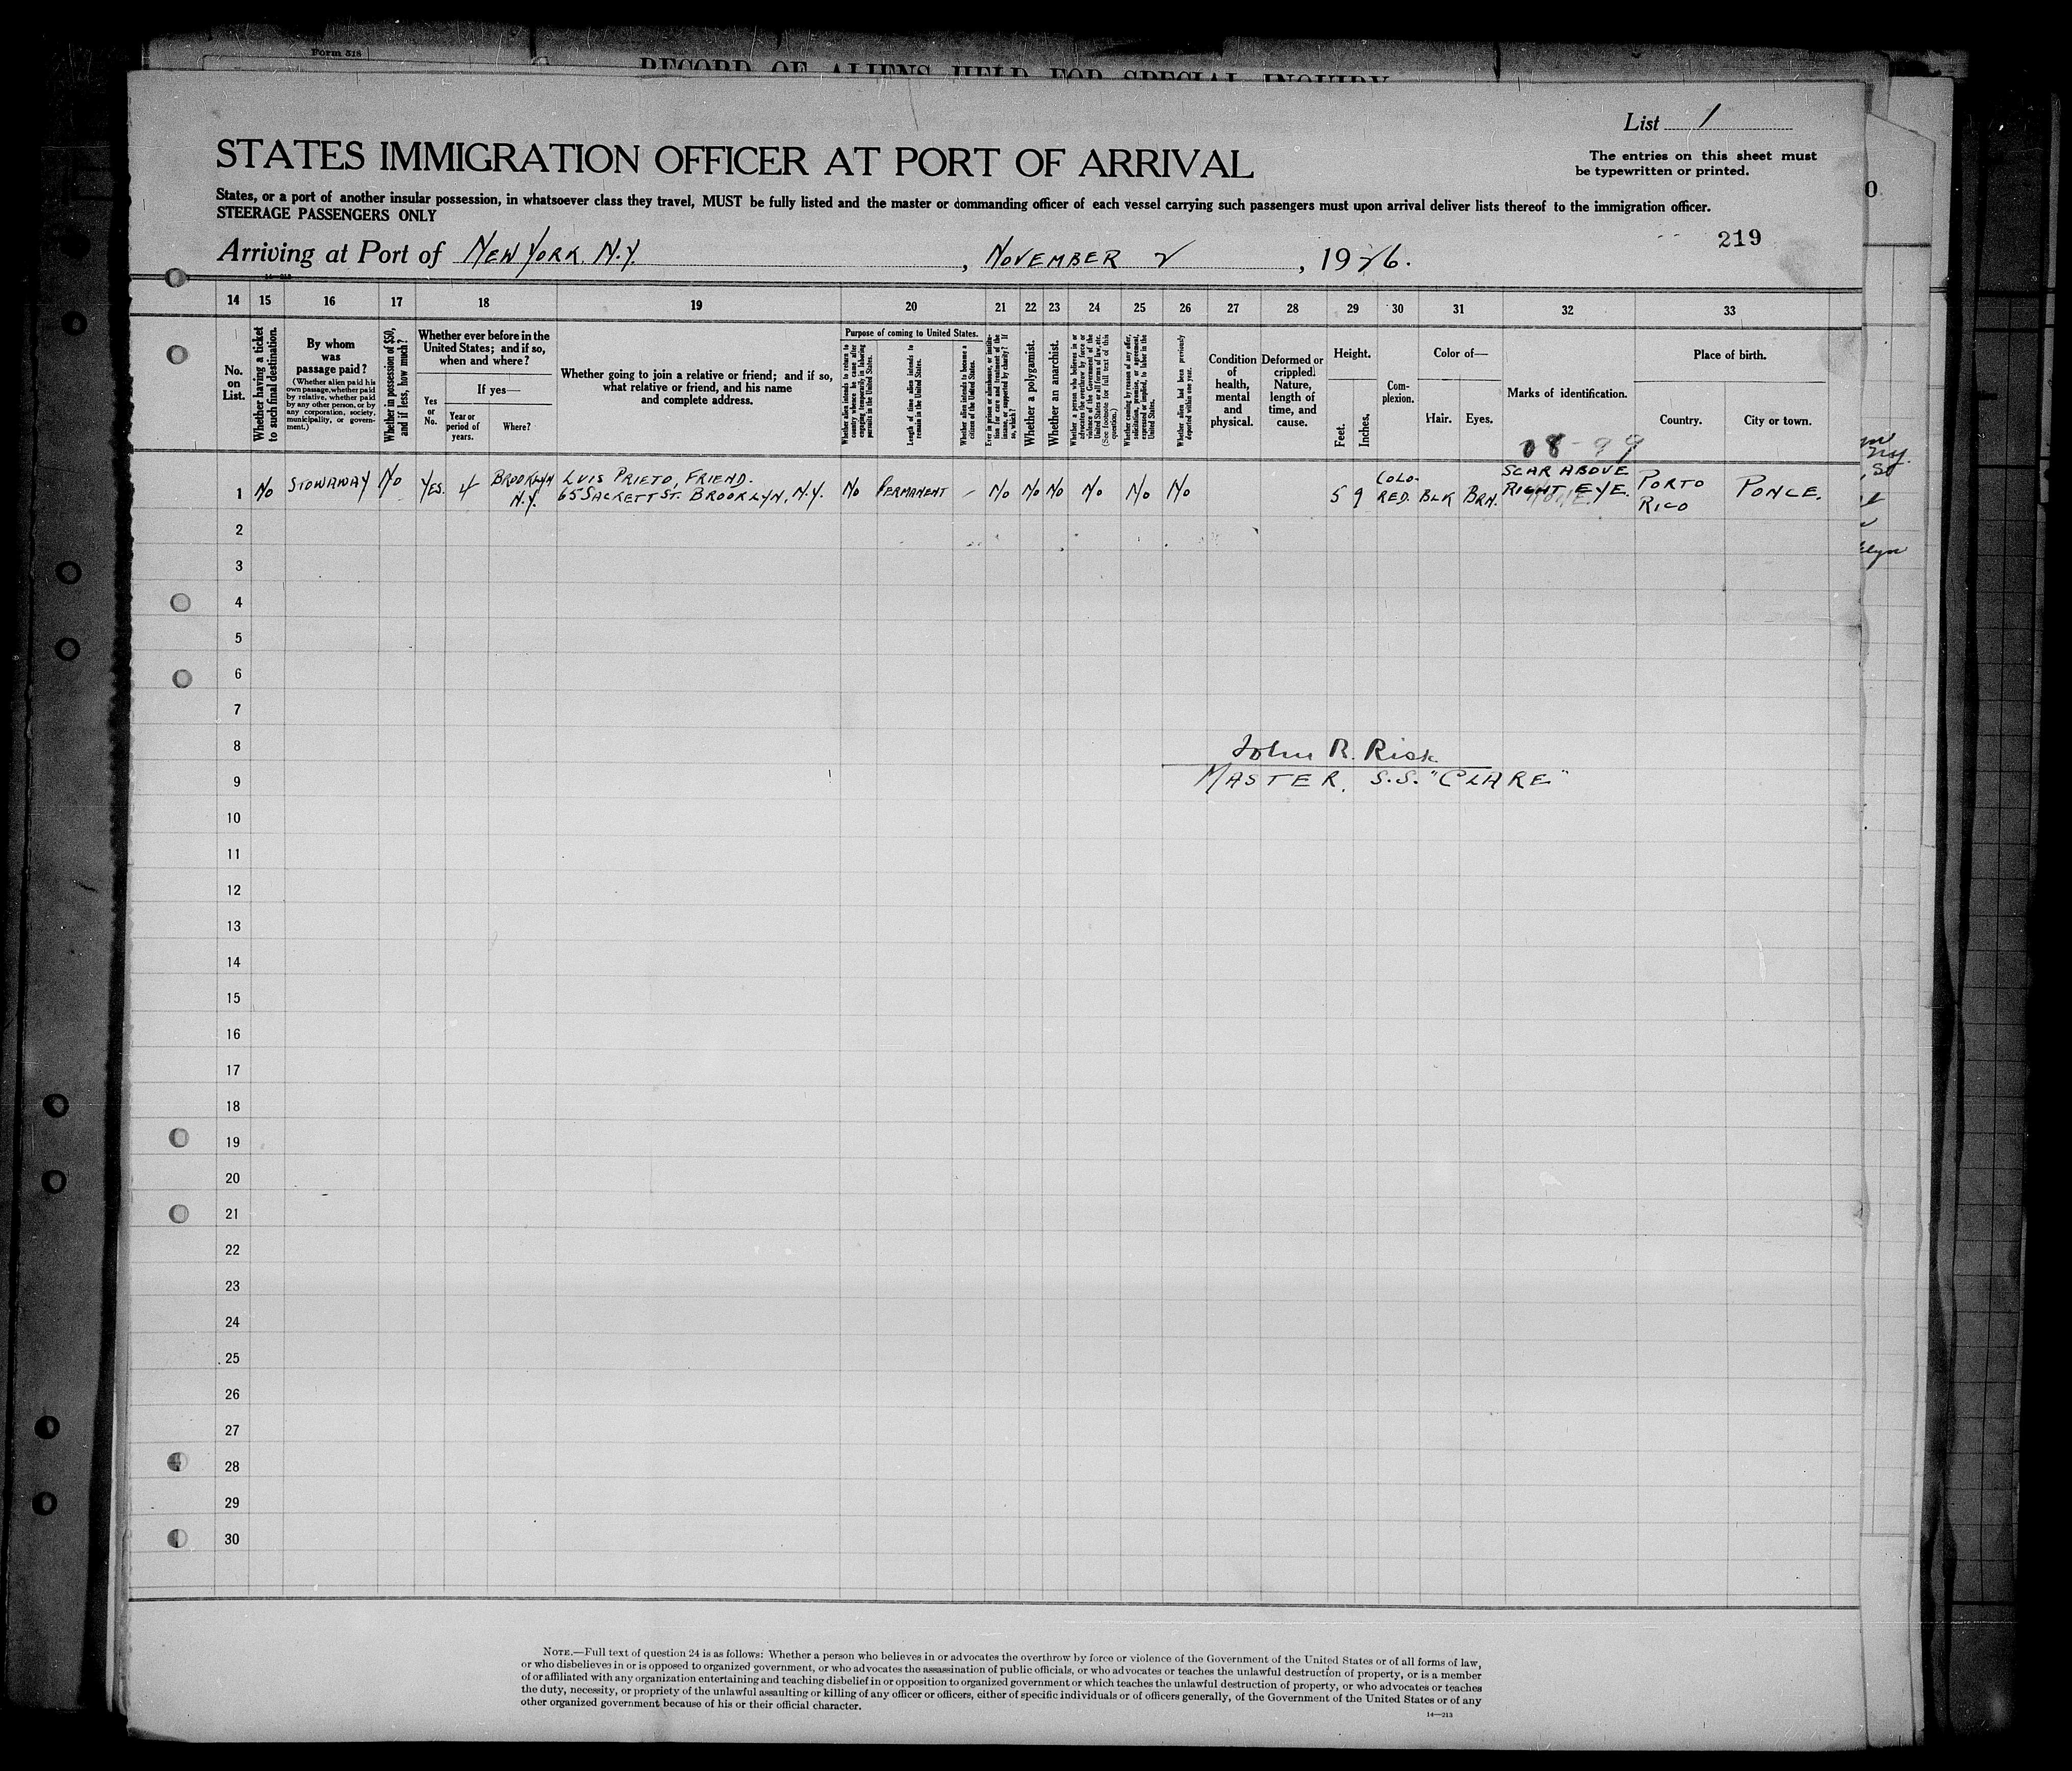 Form 518
RECORD OF ALIENS HELD FOR SPECIAL INQUIRY
List 1
STATES IMMIGRATION OFFICER AT PORT OF ARRIVAL
The entries on this sheet must
be typewritten or printed.
States, or a port of another insular possession, in whatsoever class they travel, MUST be fully listed and the master or commanding officer of each vessel carrying such passengers must upon arrival deliver lists thereof to the immigration officer.
STEERAGE PASSENGERS ONLY
219
Arriving at Port of NEW YORK. N.Y. , NOVEMBER 2 , 1926.
14 15 16 17 18 19 20 21 22 23 24 25 26 27 28 29 30 31 32 33
No.
on
List.
Whether having a ticket
to such final destination.
By whom
was
passage paid?
(Whether alien paid his
own passage, whether paid
by relative, whether paid
by any other person, or by
any corporation, society,
municipality, or govern-
ment.)
Whether in possession of $50,
and if less, how much?
Whether ever before in the
United States; and if so,
when and where?
If yes—
Yes
or
No.
Year or
period of
years.
Where?
Whether going to join a relative or friend; and if so,
what relative or friend, and his name
and complete address.
Purpose of coming to United States.
Whether alien intends to return to
country whence he came after
engaging temporarily in laboring
pursuits in the United States.
Length of time alien intends to
remain in the United States.
Whether alien intends to become a
citizen of the United States.
Ever in prison or almshouse, or institu-
tion for care and treatment of the
insane, or supported by charity? If
so, which?
Whether a polygamist.
Whether an anarchist.
Whether a person who believes in or
advocates the overthrow by force or
violence of the Government of the
United States or all forms of law, etc.
(See footnote for full text of this
question.)
Whether coming by reason of any offer,
solicitation, promise, or agreement,
expressed or implied, to labor in the
United States.
Whether alien had been previously
deported within one year.
Condition
of
health,
mental
and
physical.
Deformed or
crippled.
Nature,
length of
time, and
cause.
Height.
Feet.
Inches.
Com-
plexion.
Color of—
Hair. Eyes.
Marks of identification.
Place of birth.
Country. City or town.
08-99
1 NO STOWAWAY NO YES. 4 BROOKLYN
N.Y.
LUIS PRIETO, FRIEND.
65 SACKETT ST. BROOKLYN, N.Y.
NO PERMANENT - NO NO NO NO NO NO
5 9 COLO-
RED. BLK BRN.
SCAR ABOVE
RIGHT EYE.
PORTO
RICO
PONCE.
2
3
4
5
6
7
8
John R. Risk
9
MASTER, S.S. "CLARE"
10
11
12
13
14
15
16
17
18
19
20
21
22
23
24
25
26
27
28
29
30
NOTE.—Full text of question 24 is as follows: Whether a person who believes in or advocates the overthrow by force or violence of the Government of the United States or of all forms of law,
or who disbelieves in or is opposed to organized government, or who advocates the assassination of public officials, or who advocates or teaches the unlawful destruction of property, or is a member
of or affiliated with any organization entertaining and teaching disbelief in or opposition to organized government or which teaches the unlawful destruction of property, or who advocates or teaches
the duty, necessity, or propriety of the unlawful assaulting or killing of any officer or officers, either of specific individuals or of officers generally, of the Government of the United States or of any
other organized government because of his or their official character.
14—213